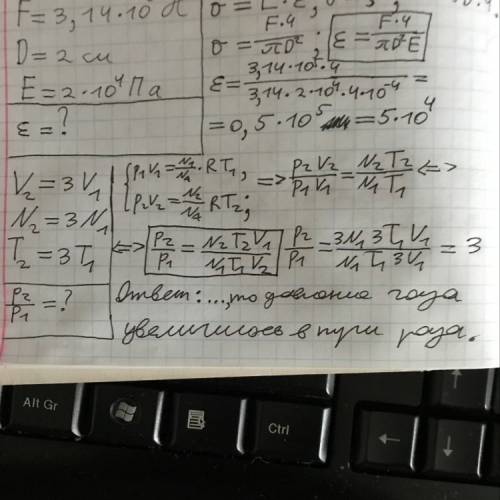 F = 3,14·10
D = 2 см
E = 2·10⁴ Па
ε = ?
σ = F·4/πD² ; ε = F·4/πD²E
ε = 3,14·10 ·4/3,14·2·10⁴·4·10⁻⁴ =
= 0,5·10⁵ = 5·10⁴
V₂ = 3V₁
N₂ = 3N₁
T₂ = 3T₁
P₂/P₁ = ?
{ P₁V₁ = N₁/Nₐ · RT₁,
P₂V₂ = N₂/Nₐ RT₂;
=> P₂V₂/P₁V₁ = N₂T₂/N₁T₁ <=>
<=> P₂/P₁ = N₂T₂V₁/N₁T₁V₂
P₂/P₁ = 3N₁3T₁V₁/N₁T₁3V₁ = 3
Ответ: ..., то давление газа
увеличилось в три раза.
Alt Gr
Ctrl